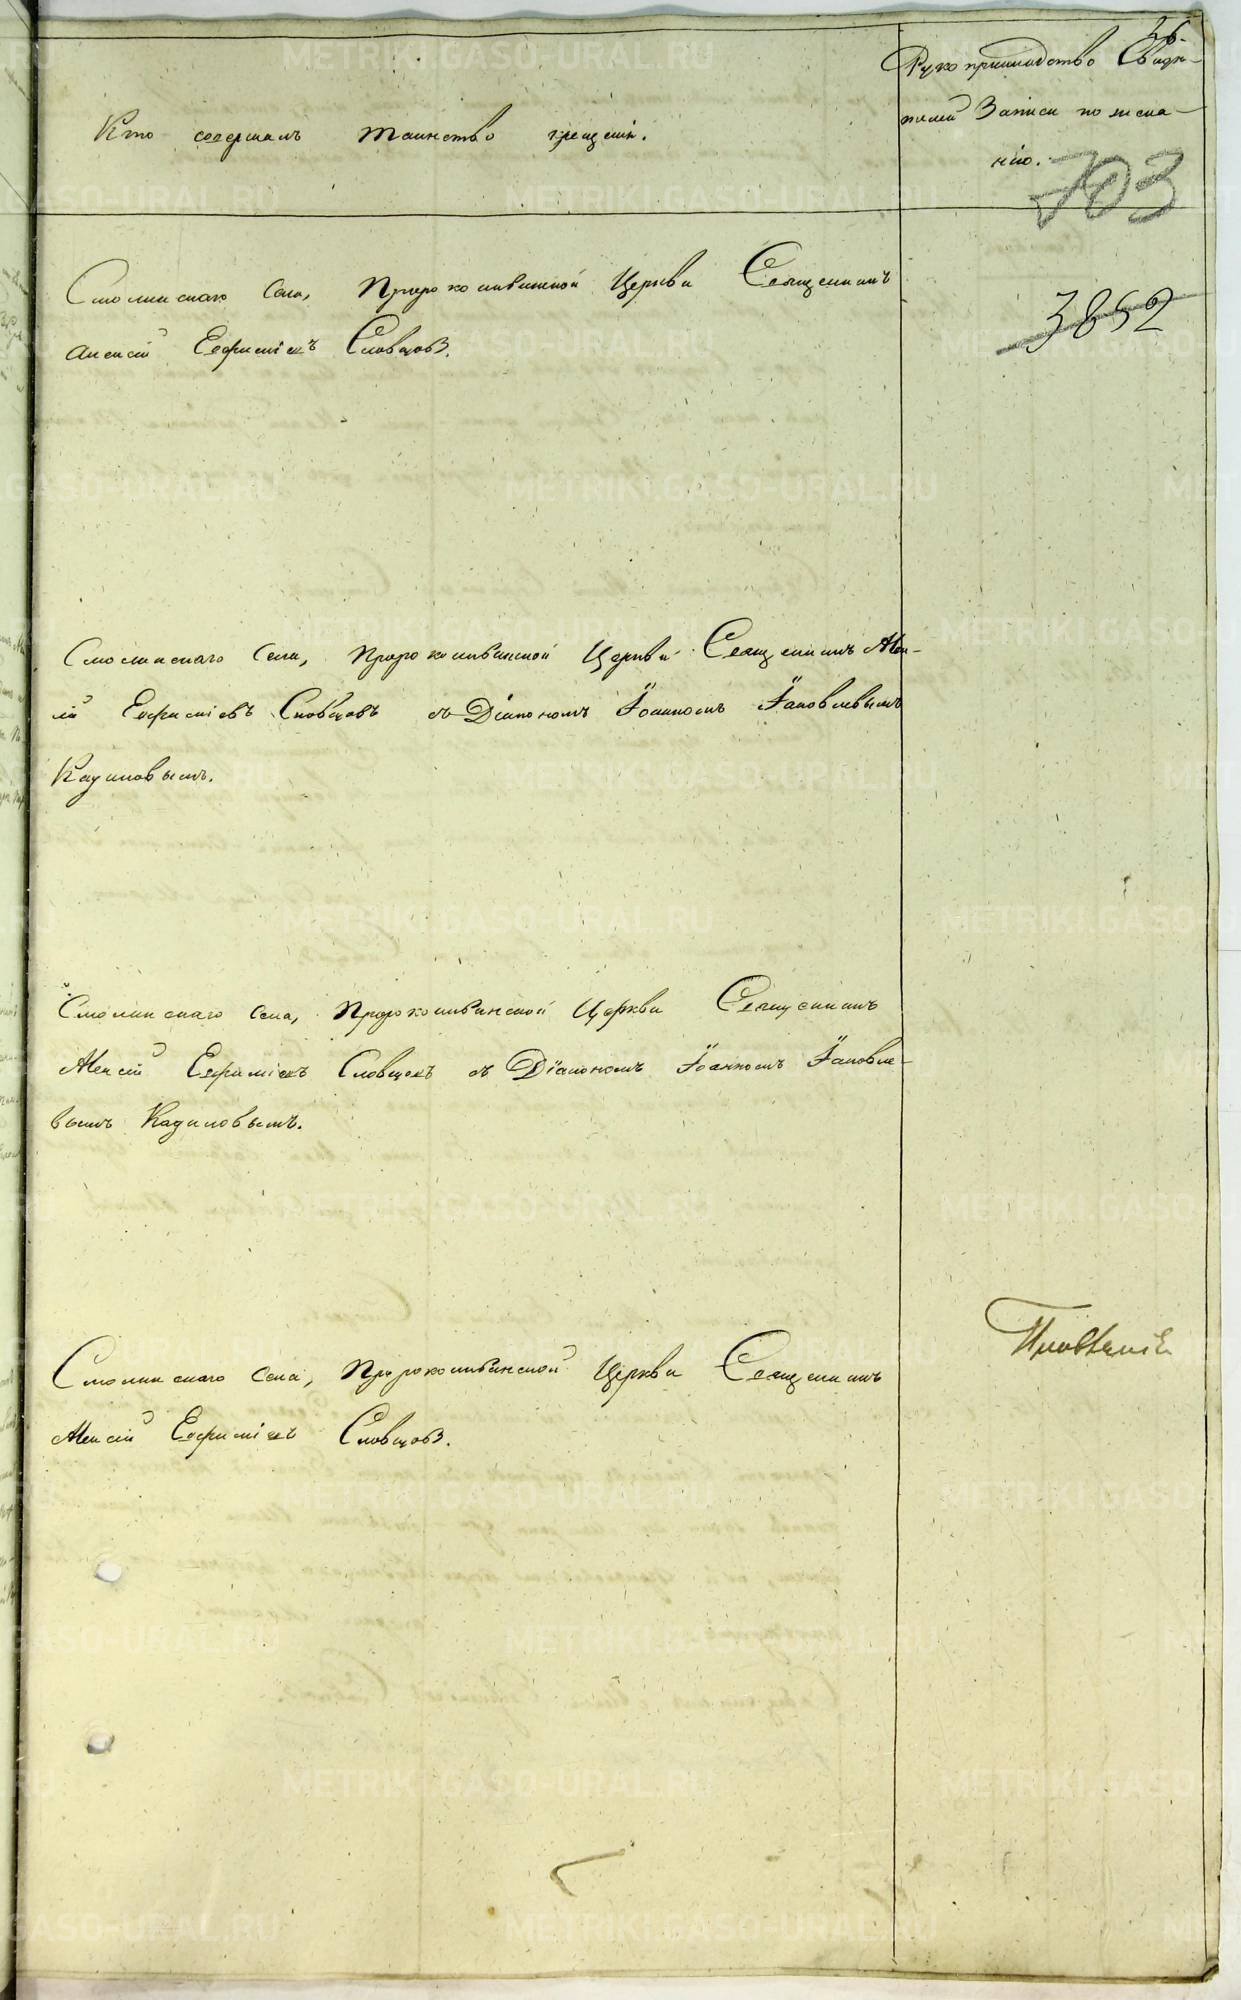 36.
Кто совершалъ таинство крещенія.
Рукоприкладство Свидѣ-
телей Записи по жела-
нію.
703
3852
Смолинскаго Села, Пророкоильинской Церкви Священникъ
Алексій Евфиміевъ Словцовъ.
Смолинскаго Села, Пророкоильинской Церкви Священникъ Алек-
сій Евфиміевъ Словцовъ съ Діакономъ Іоанномъ Іаковлевымъ
Кадиловымъ.
Смолинскаго Села, Пророкоильинской Церкви Священникъ
Алексій Евфиміевъ Словцовъ съ Діакономъ Іоанномъ Іаковле-
вымъ Кадиловымъ.
Смолинскаго Села, Пророкоильинской Церкви Священникъ
Алексій Евфиміевъ Словцовъ.
METRIKI.GASO-URAL.RU